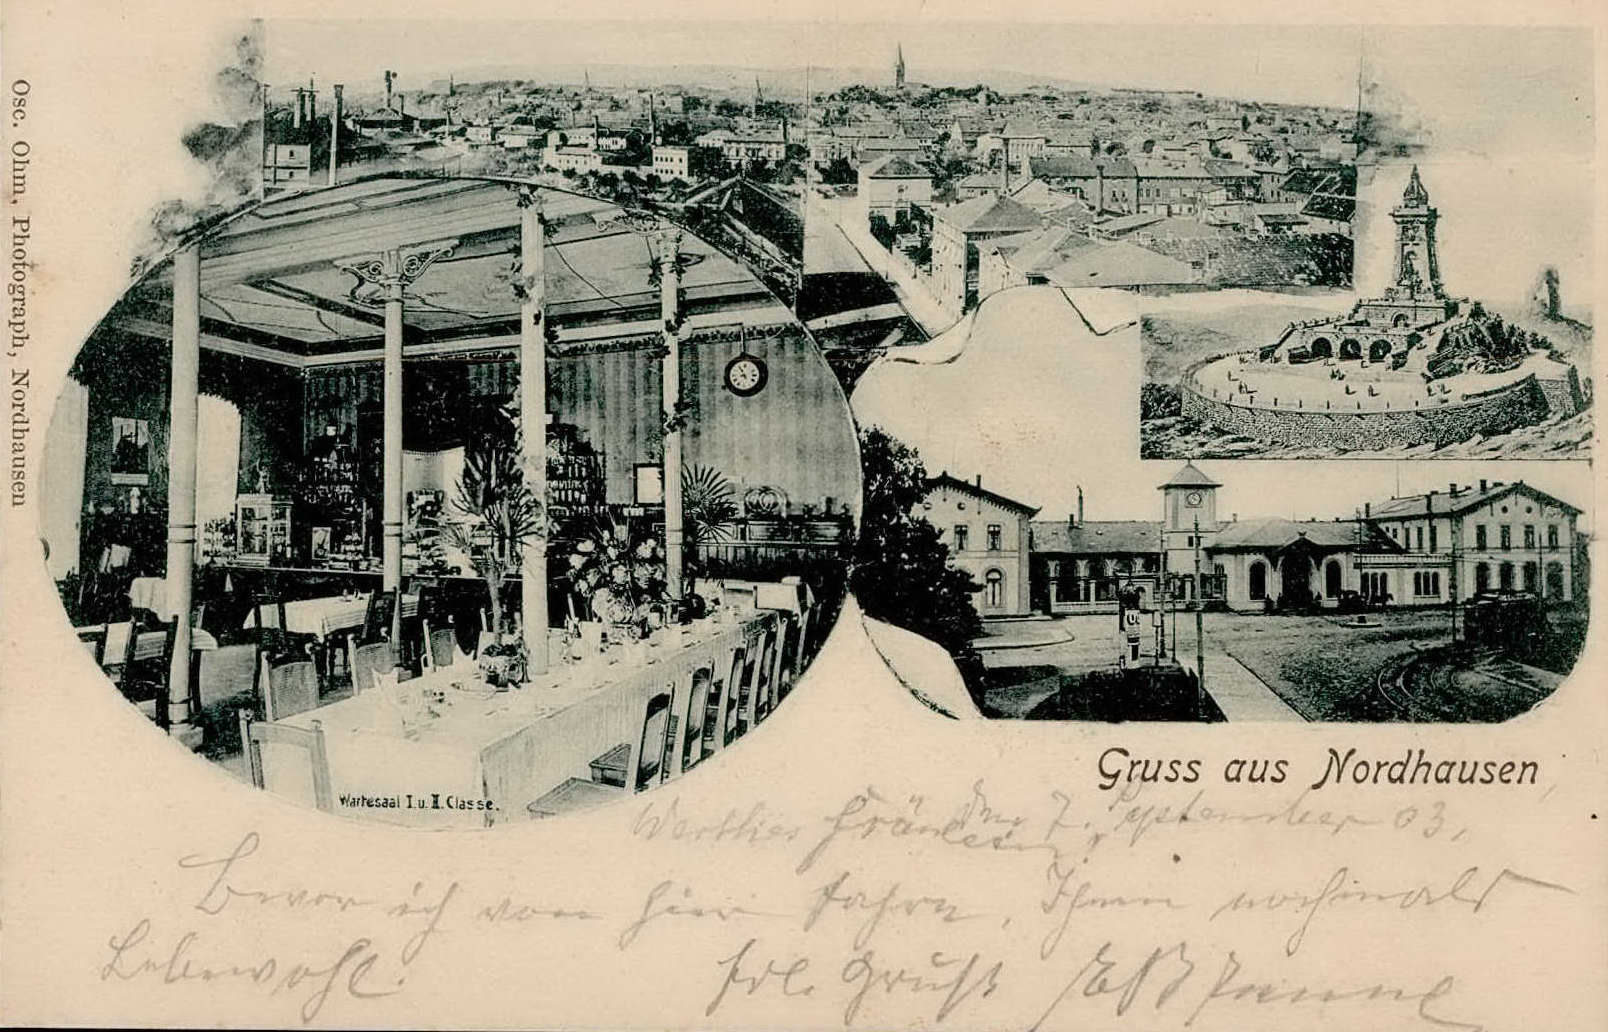 Osc. Ohm, Photograph, Nordhausen
Wartesaal I. u. II. Classe.
Gruss aus Nordhausen
den 7. September 03.
Werthes Fräulein
Bevor ich von hier fahre, Ihnen nochmals
Lebewohl.
frdl. Gruß